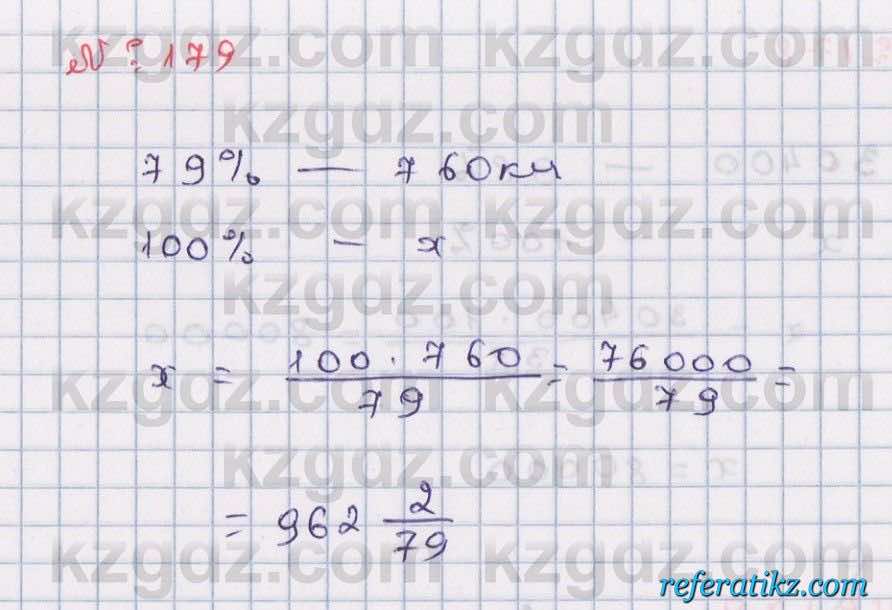 № 179
79% — 760км
100% — x
x = 100 · 760 / 79 = 76000 / 79 =
= 962 2/79
kzgdz.com
referatikz.com